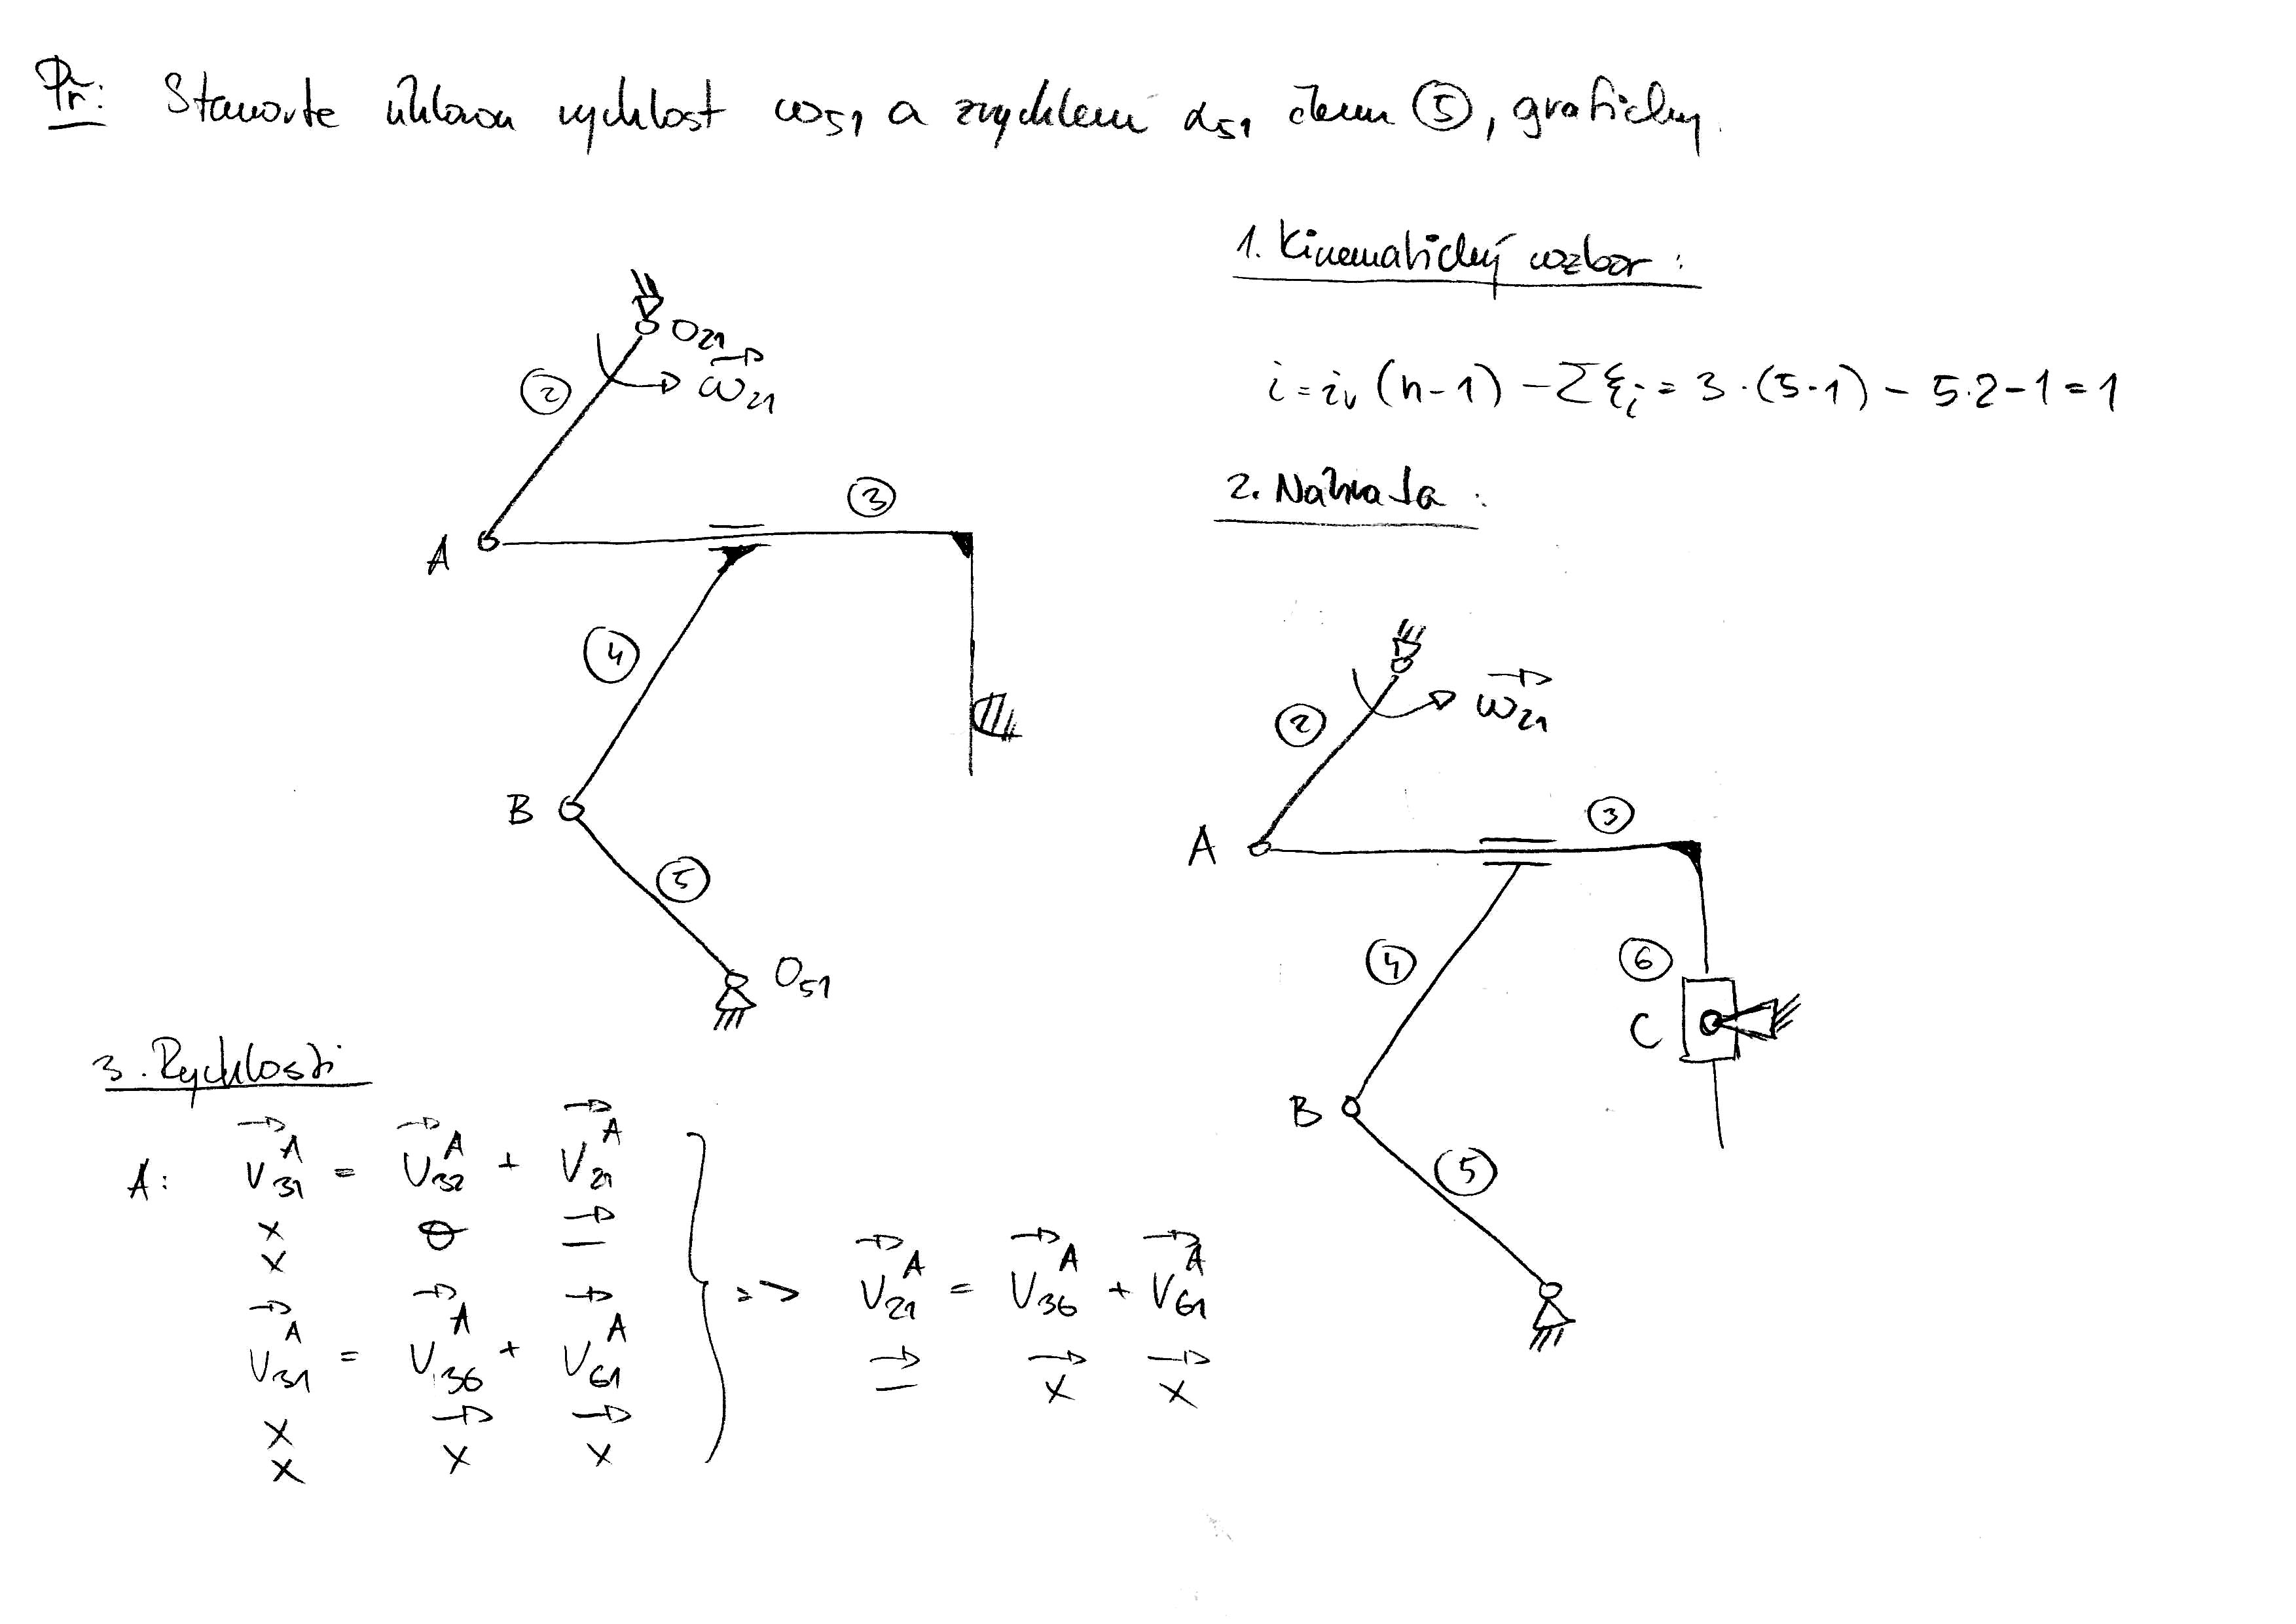 Př: Stanovte úhlovou rychlost ω51 a zrychlení α51 členu ⑤, graficky.
1. Kinematický rozbor:
i = iv (n-1) - Σξi = 3·(5-1) - 5·2-1 = 1
2. Náhrada:
O21
②
ω21
③
A
④
B
⑤
O51
②
ω21
③
A
④
⑥
C
B
⑤
3. Rychlosti
A: v31^A = v32^A + v21^A
x 0
x
v31^A = v36^A + v61^A
x
x x x
=> v21^A = v36^A + v61^A
x x